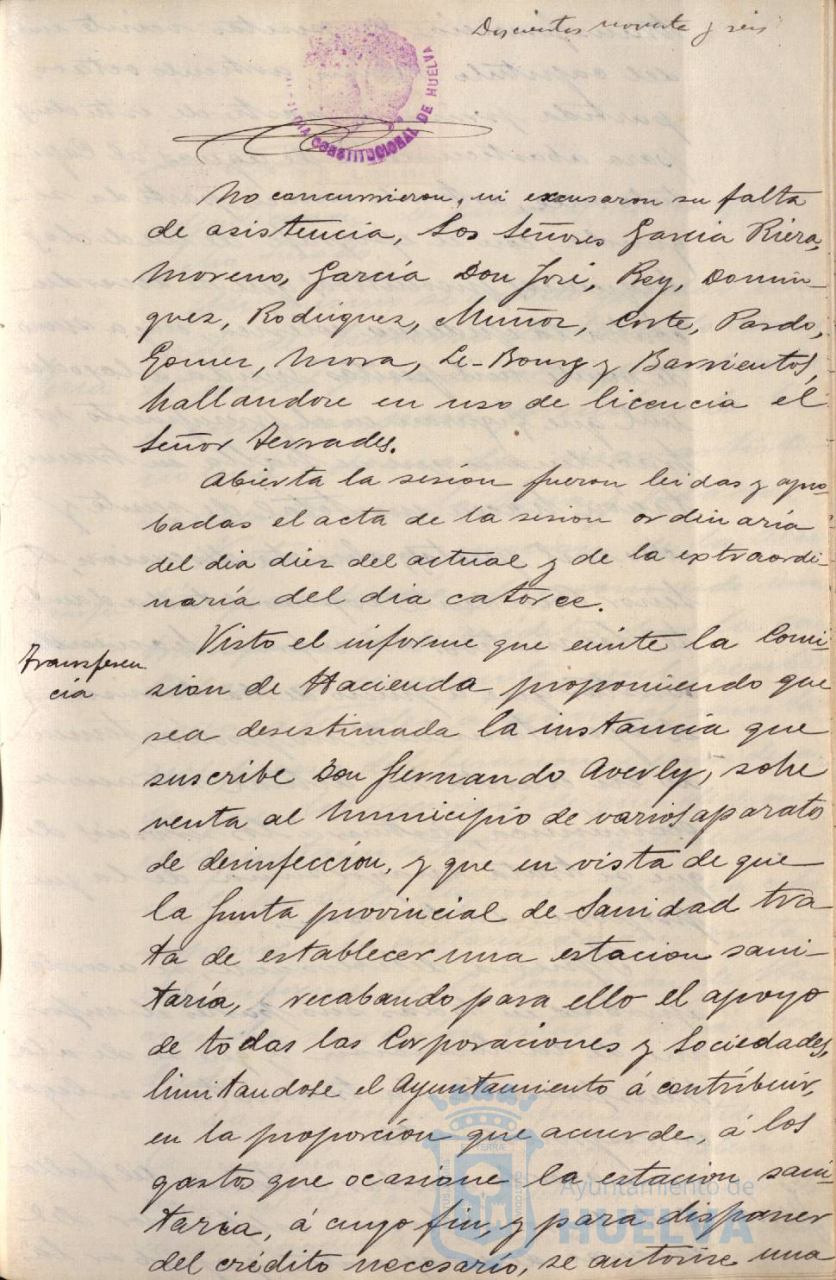 Doscientos noventa y seis
CONSTITUCIONAL DE HUELVA
No concurrieron, ni excusaron su falta
de asistencia, los Señores Garcia Riera,
Moreno, García Don José, Rey, Domin-
guez, Rodriguez, Muñoz, Corte, Pardo,
Gomez, Mora, Le-Bourg y Barrientos,
hallandose en uso de licencia el
Señor Terrades.
Abierta la sesión fueron leidas y apro-
badas el acta de la sesion ordinaria
del dia diez del actual y de la extraordi-
naria del dia catorce.
Transferen
cia
Visto el informe que emite la Comi
sion de Hacienda proponiendo que
sea desestimada la instancia que
suscribe Don Fernando Averly, sobre
venta al Municipio de varios aparatos
de desinfección, y que en vista de que
la Junta provincial de Sanidad tra-
ta de establecer una estacion sani-
taría, recabando para ello el apoyo
de todas las Corporaciones y Sociedades,
limitandose el Ayuntamiento á contribuir,
en la proporción que acuerde, á los
gastos que ocasione la estacion sani-
taria, á cuyo fin, y para disponer
del crédito necesario, se autorice una
Ayuntamiento de
HUELVA